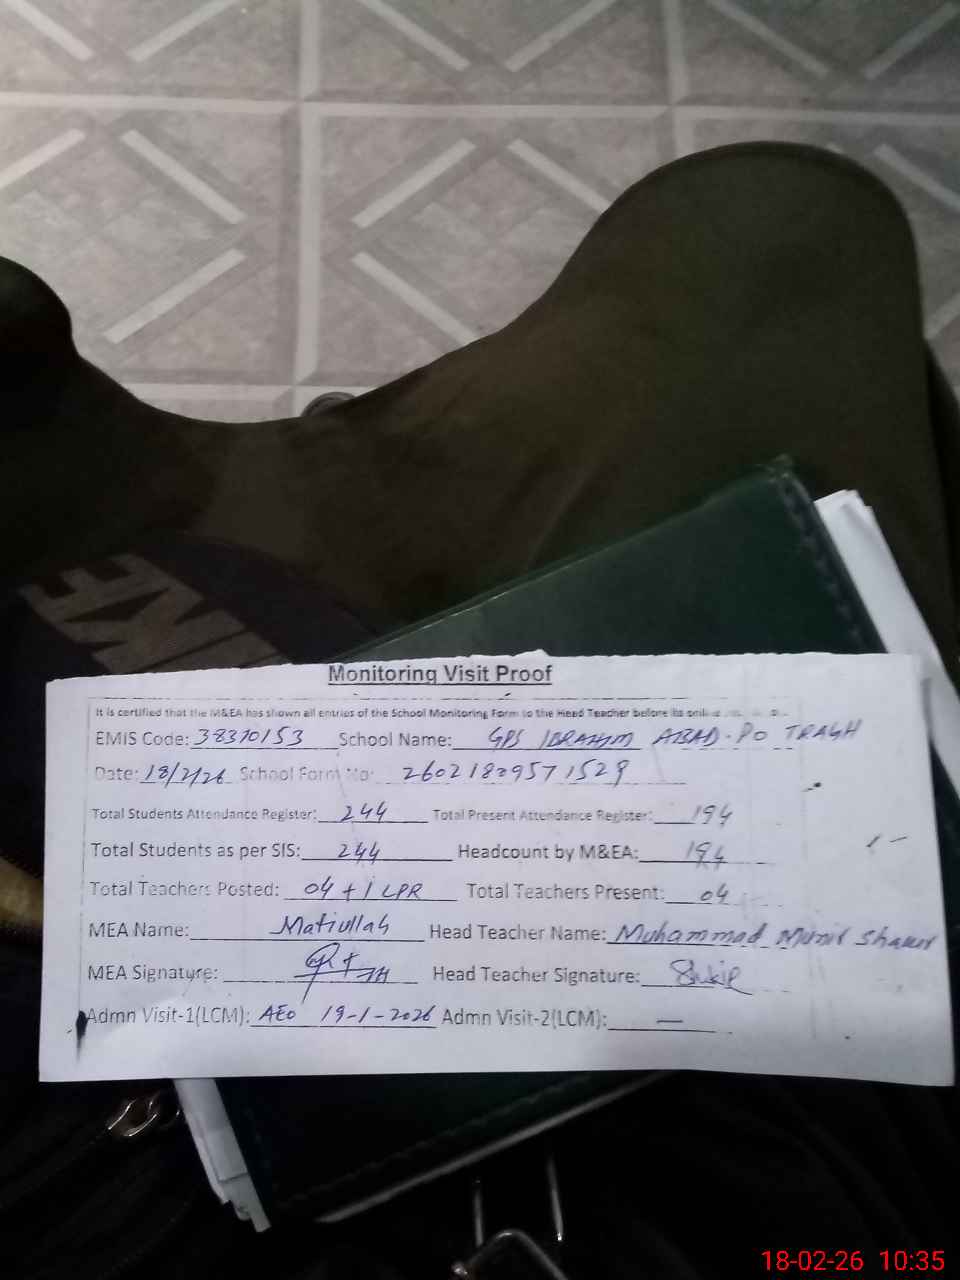 NKF
Monitoring Visit Proof
It is certified that the M&EA has shown all entries of the School Monitoring Form to the Head Teacher before its
EMIS Code: 38370153 School Name: GPS IBRAHIM ABAD. PO TRAGH
Date: 18/2/26 School Form No: 26021809571529
Total Students Attendance Register: 244 Total Present Attendance Register: 194
Total Students as per SIS: 244 Headcount by M&EA: 194
Total Teachers Posted: 04 + 1 LPR Total Teachers Present: 04
MEA Name: Matiullah Head Teacher Name: Muhammad Munir
MEA Signature: Head Teacher Signature:
Admn Visit-1(LCM): AEO 19-1-2026 Admn Visit-2(LCM): —
18-02-26 10:35